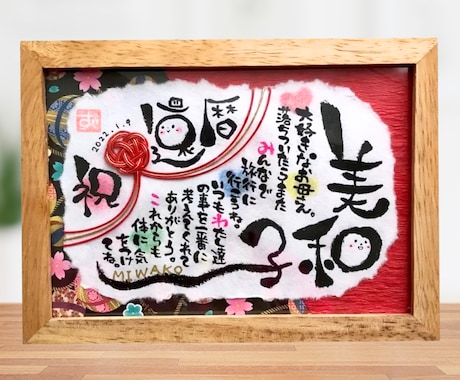 美和子
大好きなお母さん。
落ちついたらまた
みんなで
旅行に
行こうね。
いつもわたし達
の事を一番に
考えてくれて
ありがとう。
これからも
体に気
をつけ
てね。
MIWAKO
還暦
祝
2022.1.9